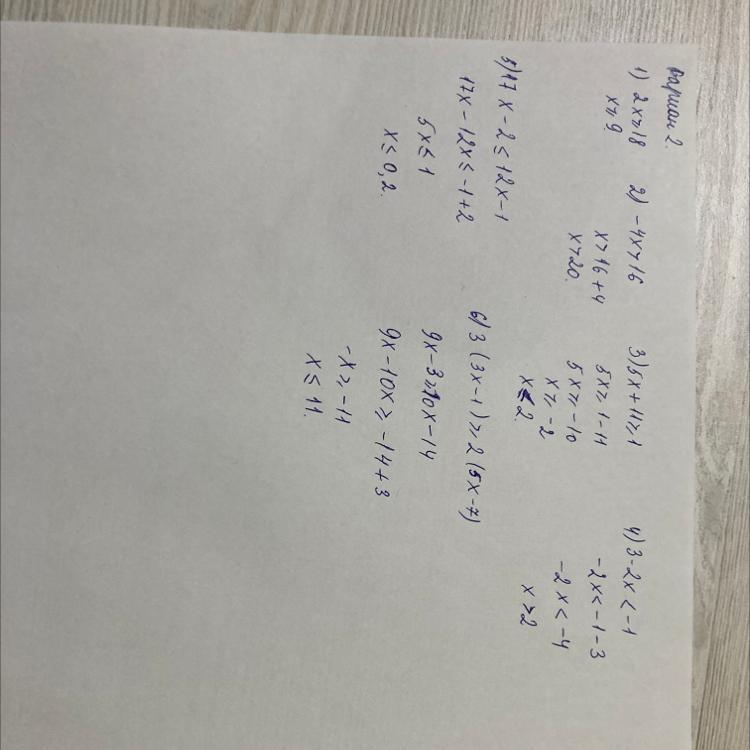 Вариан 2.
1) 2x ≥ 18
x ≥ 9
2) -4x > 16
x > 16 + 4
x > 20.
3) 5x + 11 ≥ 1
5x ≥ 1 - 11
5x ≥ -10
x ≥ -2
x ≤ 2.
4) 3 - 2x < -1
-2x < -1 - 3
-2x < -4
x > 2
5) 17x - 2 ≤ 12x - 1
17x - 12x ≤ -1 + 2
5x ≤ 1
x ≤ 0,2.
6) 3(3x - 1) ≥ 2(5x - 7)
9x - 3 ≥ 10x - 14
9x - 10x ≥ -14 + 3
-x ≥ -11
x ≤ 11.